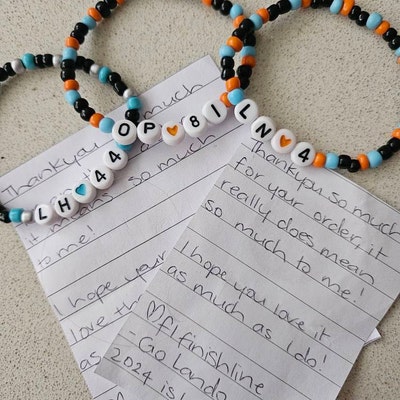 LH♥44
OP♥81
LN♥4
Thankyou much
so much
to me!
I hope your
love
as
Thankyou so much
for your order, it
really does mean
so much to me!
I hope you love it
as much as I do!
♡f1finishline
- Go Lando
2024 is